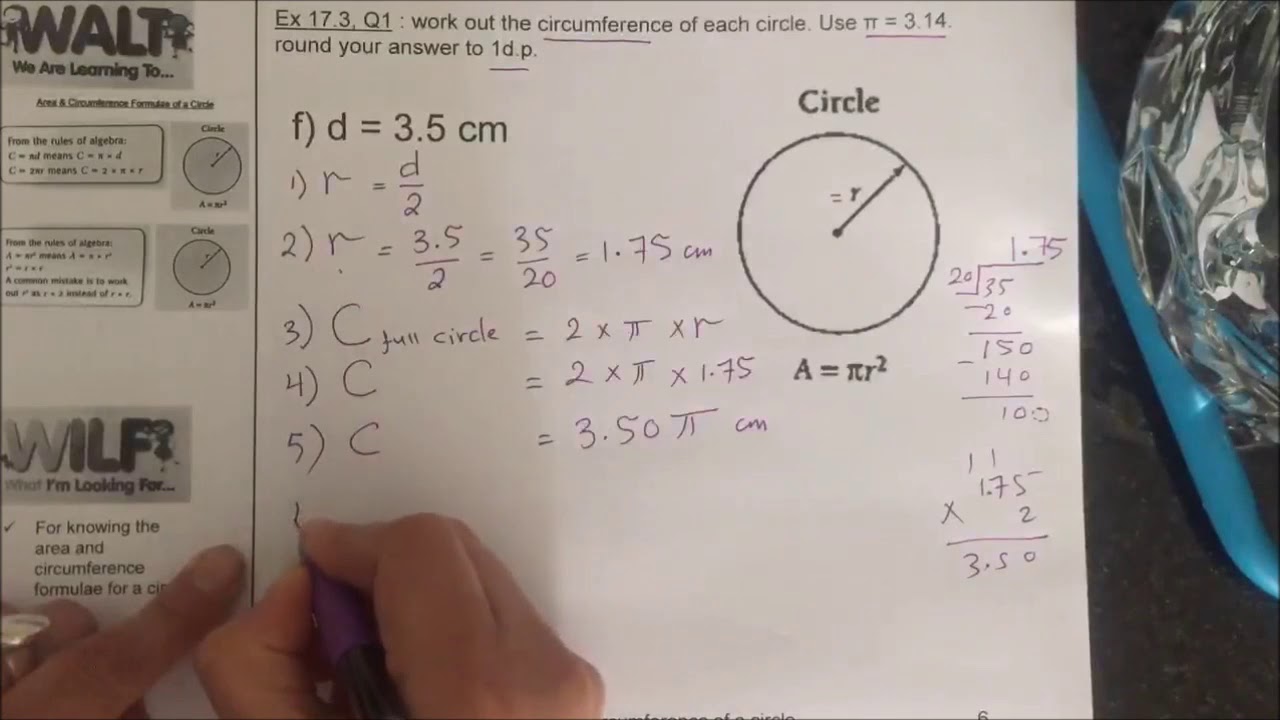 WALT
We Are Learning To...
Area & Circumference Formulae of a Circle
From the rules of algebra:
C = πd means C = π × d
C = 2πr means C = 2 × π × r
Circle
r
A = πr²
From the rules of algebra:
A = πr² means A = π × r²
r² = r × r
A common mistake is to work
out r² as r × 2 instead of r × r.
Circle
r
A = πr²
WILF
What I'm Looking For...
✓ For knowing the
area and
circumference
formulae for a
Ex 17.3, Q1 : work out the circumference of each circle. Use π = 3.14.
round your answer to 1d.p.
f) d = 3.5 cm
1) r = d/2
2) r = 3.5/2 = 35/20 = 1.75 cm
3) C full circle = 2 × π × r
4) C = 2 × π × 1.75
5) C = 3.50 π cm
Circle
= r
A = πr²
1.75
20 35
- 20
150
- 140
100
1 1
1.75
× 2
3.50
of a circle
6